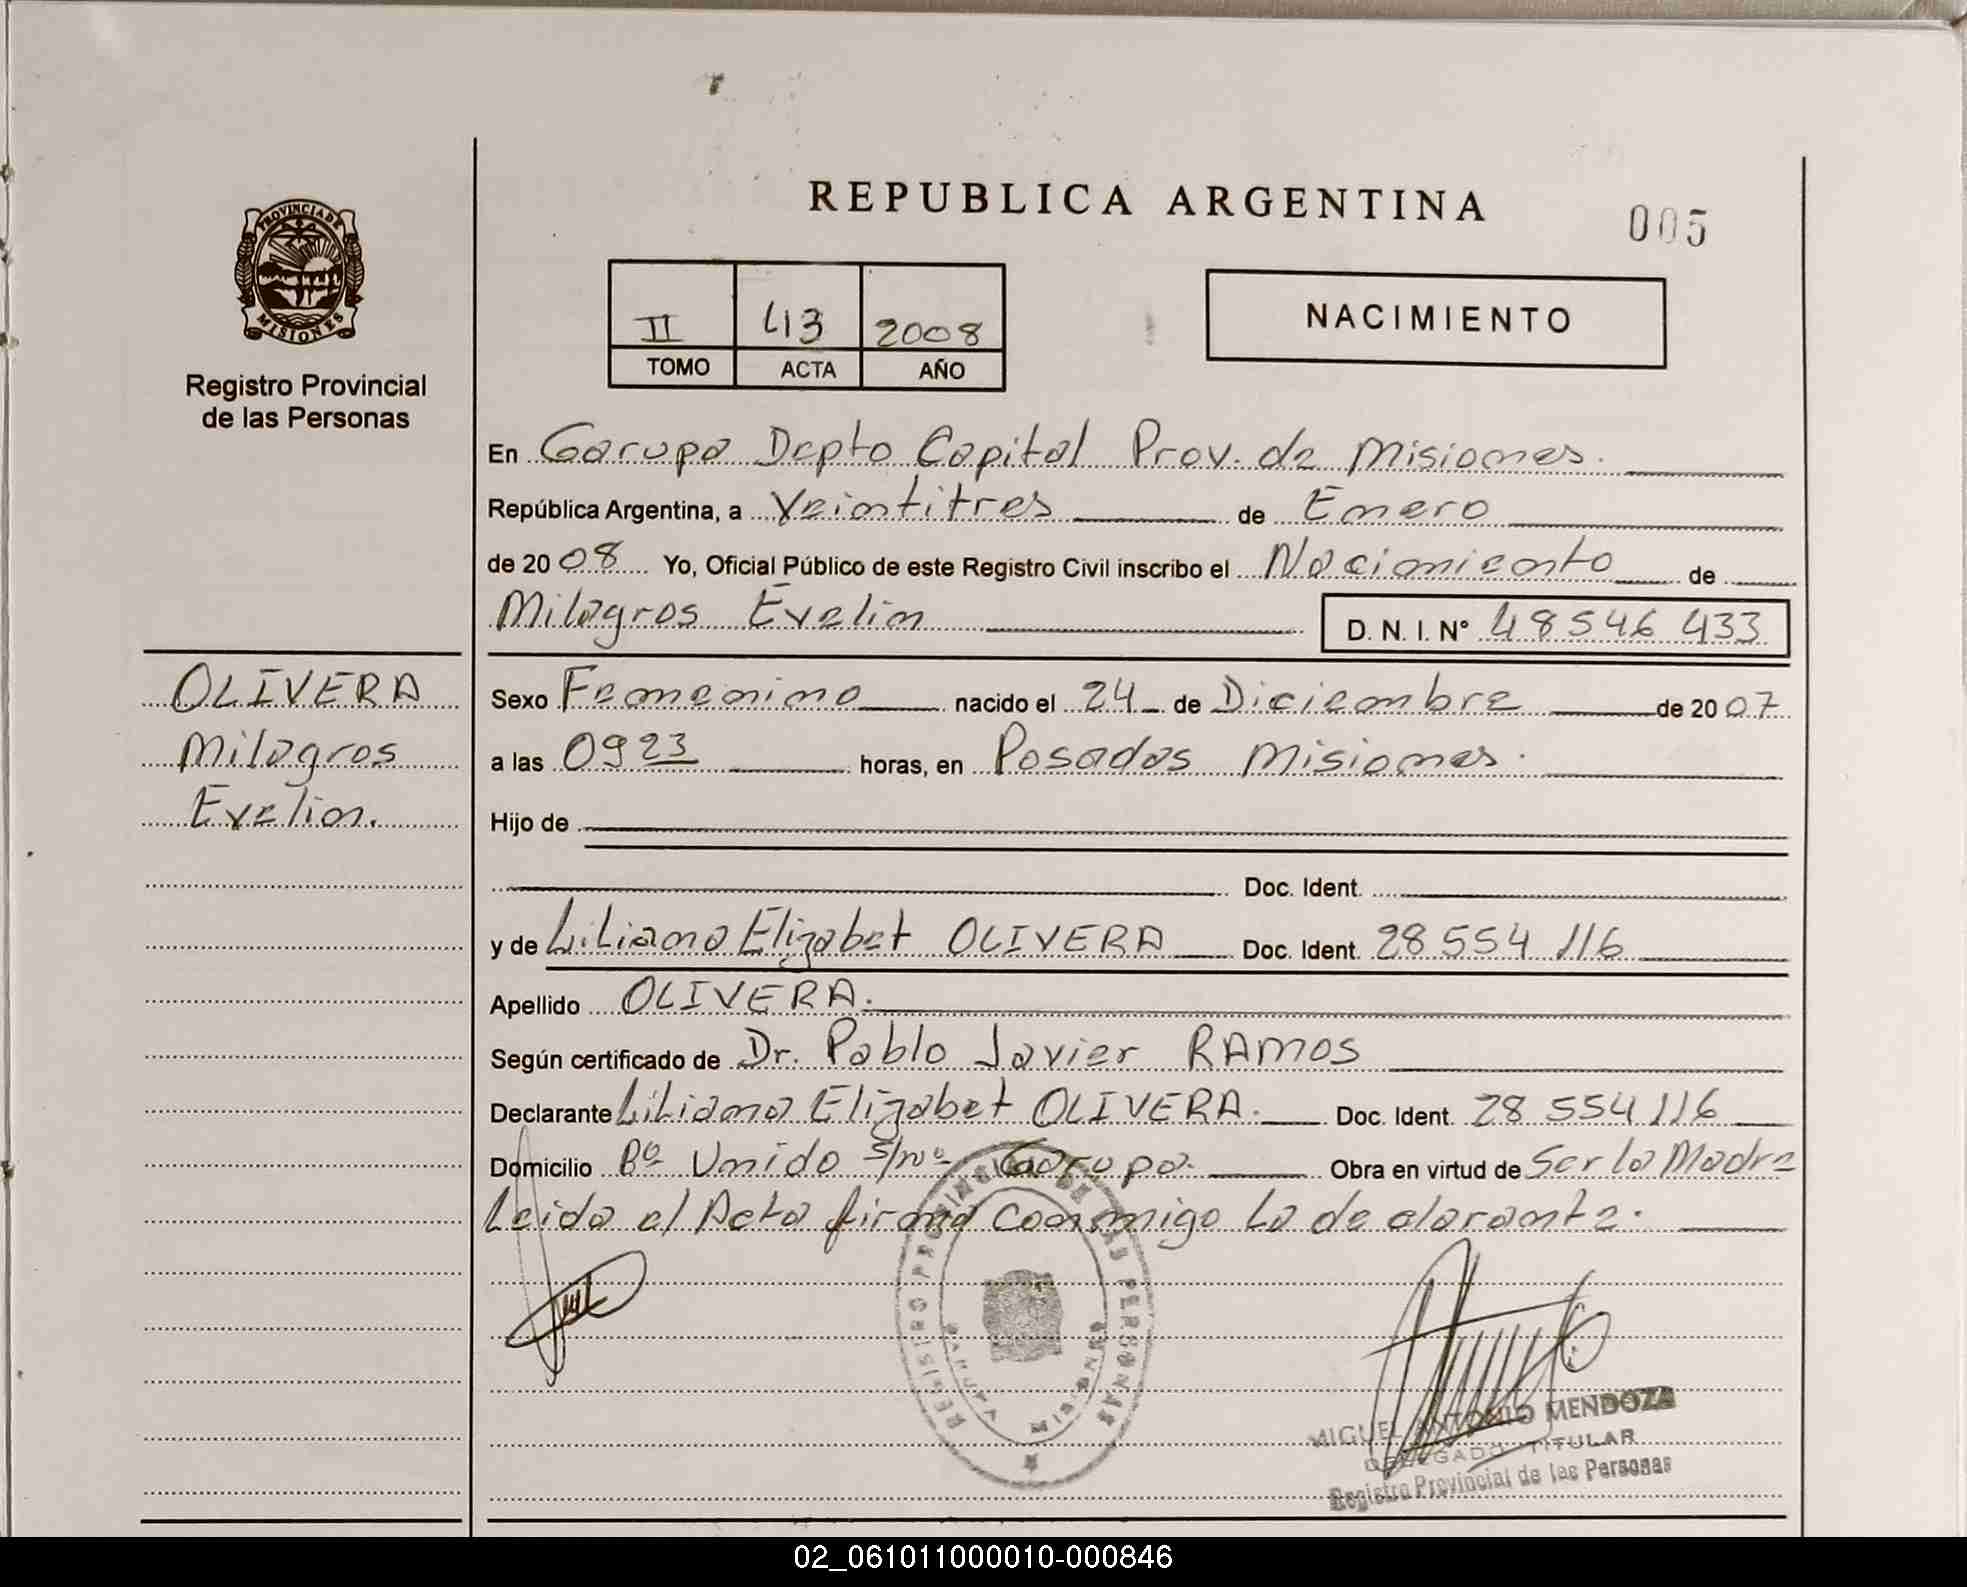 PROVINCIA DE
MISIONES
Registro Provincial
de las Personas
REPUBLICA ARGENTINA
005
II 413 2008
TOMO ACTA AÑO
NACIMIENTO
En Garupa Depto Capital Prov. de Misiones.
República Argentina, a Veintitres de Enero
de 2008 Yo, Oficial Público de este Registro Civil inscribo el Nacimiento de
Milagros Evelin D. N. I. N° 48546 433
OLIVERA
Milagros
Evelin.
Sexo Femenino nacido el 24 de Diciembre de 2007
a las 0923 horas, en Posadas Misiones.
Hijo de
Doc. Ident.
y de Liliana Elizabet OLIVERA Doc. Ident. 28 554 116
Apellido OLIVERA.
Según certificado de Dr. Pablo Javier RAMOS
Declarante Liliana Elizabet OLIVERA. Doc. Ident. 28 554 116
Domicilio Bº Unido S/Nº Garupa. Obra en virtud de Ser la Madre
Leida el Acta firma conmigo La declarante.
REGISTRO PROVINCIAL DE LAS PERSONAS
GARUPA MISIONES
MIGUEL ANTONIO MENDOZA
DELEGADO TITULAR
Registro Provincial de las Personas
02_061011000010-000846